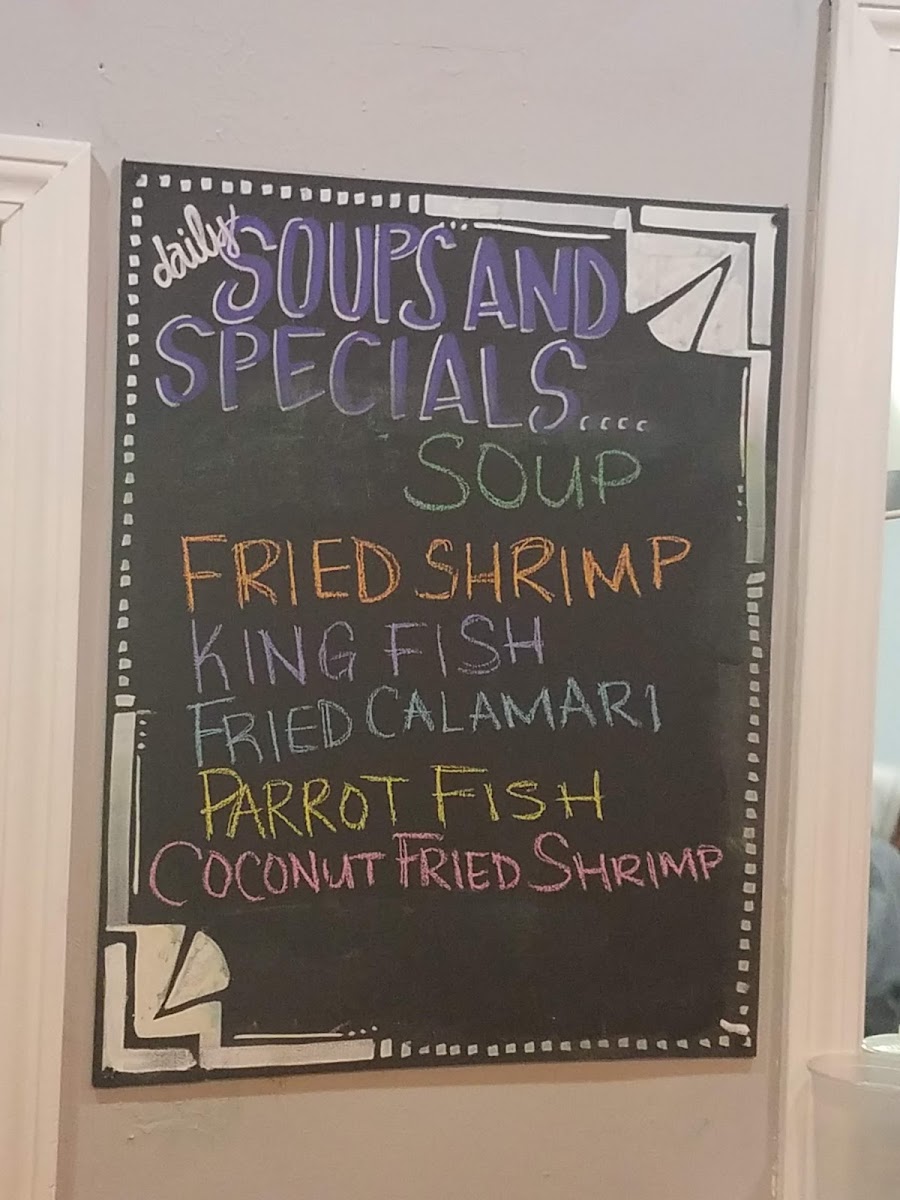 daily SOUPS AND
SPECIALS....
SOUP
FRIED SHRIMP
KING FISH
FRIED CALAMARI
PARROT FISH
COCONUT FRIED SHRIMP